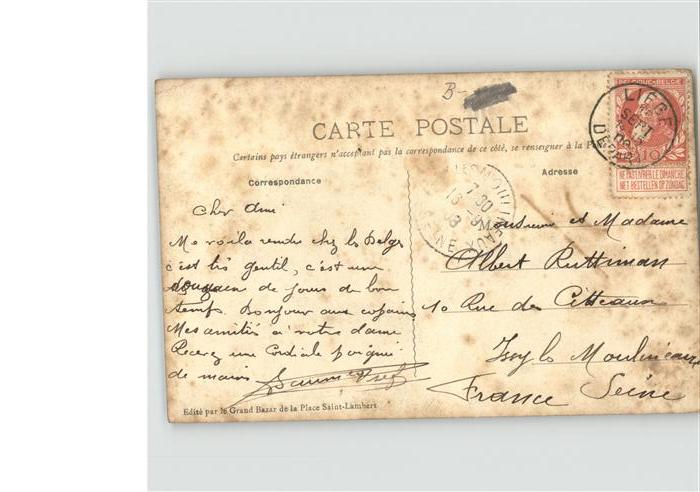 B-
CARTE POSTALE
Certains pays étrangers n'acceptant pas la correspondance de ce côté, se renseigner à la
Correspondance
Adresse
BELGIQUE·BELGIË
LIÉGE
DEPART
10
NE PAS LIVRER LE DIMANCHE
NIET BESTELLEN OP ZONDAG
7 30
Cher Ami
Me voila rendu chez les Belges
c'est très gentil, c'est une
de jours de bon
temps. Bonjour aux copains
Mes amitiés à votre dame
Recevez une Cordiale poignée
de mains
Monsieur et Madame
Albert Ruttiman
10 Rue des Citteaux
Issy les Moulineaux
France Seine
Edité par le Grand Bazar de la Place Saint-Lambert